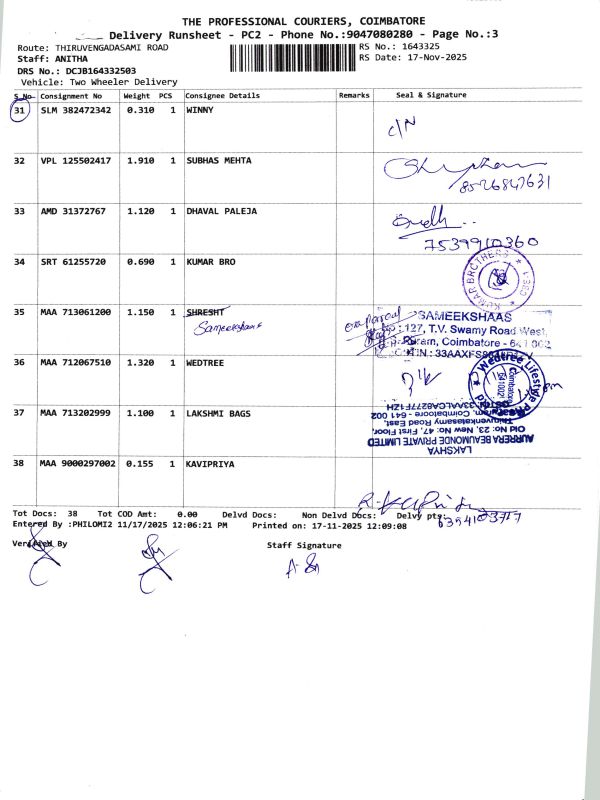 THE PROFESSIONAL COURIERS, COIMBATORE
Delivery Runsheet - PC2 - Phone No.:9047080280 - Page No.:3
Route: THIRUVENGADASAMI ROAD
RS No.: 1643325
Staff: ANITHA
RS Date: 17-Nov-2025
DRS No.: DCJB164332503
Vehicle: Two Wheeler Delivery
S.No Consignment No Weight PCS Consignee Details Remarks Seal & Signature
31 SLM 382472342 0.310 1 WINNY
32 VPL 125502417 1.910 1 SUBHAS MEHTA
8526847631
33 AMD 31372767 1.120 1 DHAVAL PALEJA
7539910360
34 SRT 61255720 0.690 1 KUMAR BRO
KUMAR BROTHERS
35 MAA 713061200 1.150 1 SHRESHT
Sameekshaas
SAMEEKSHAAS
127, T.V. Swamy Road West,
Puram, Coimbatore - 641 002
36 MAA 712067510 1.320 1 WEDTREE
Wedtree Lifestyle
Coimbatore
37 MAA 713202999 1.100 1 LAKSHMI BAGS
LAKSHYA
AURRERA BEAUMONDE PRIVATE LIMITED
Old No: 23, New No: 47, First Floor,
Thiruvenkatasamy Road East,
Coimbatore - 641 002
38 MAA 9000297002 0.155 1 KAVIPRIYA
Tot Docs: 38 Tot COD Amt: 0.00 Delvd Docs: Non Delvd Docs: Delvy pts:
6394103717
Entered By :PHILOMI2 11/17/2025 12:06:21 PM Printed on: 17-11-2025 12:09:08
Verified By Staff Signature